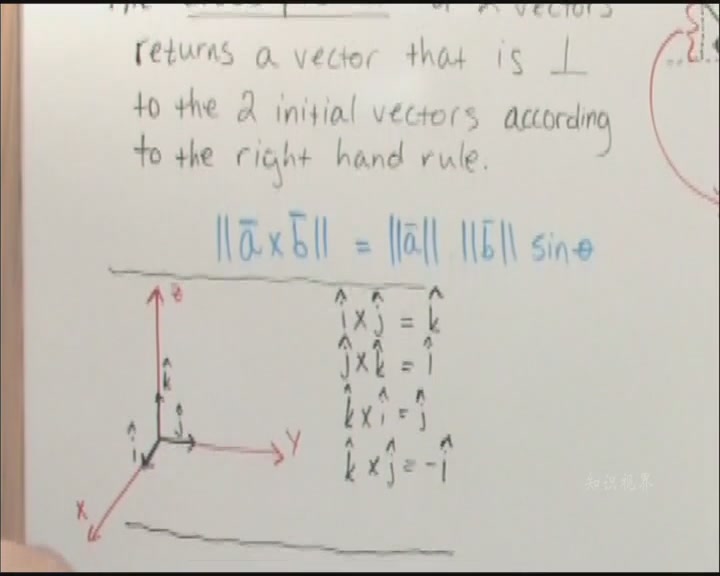 of 2 vectors
returns a vector that is ⊥
to the 2 initial vectors according
to the right hand rule.
||ā x b̄|| = ||ā|| ||b̄|| sin θ
z
î x ĵ = k̂
ĵ x k̂ = î
k̂
k̂ x î = ĵ
ĵ
î
Y
k̂ x ĵ = -î
X
知识视界